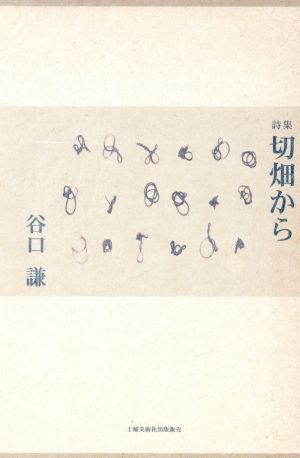 詩集
切畑から
谷口 謙
土曜美術社出版販売